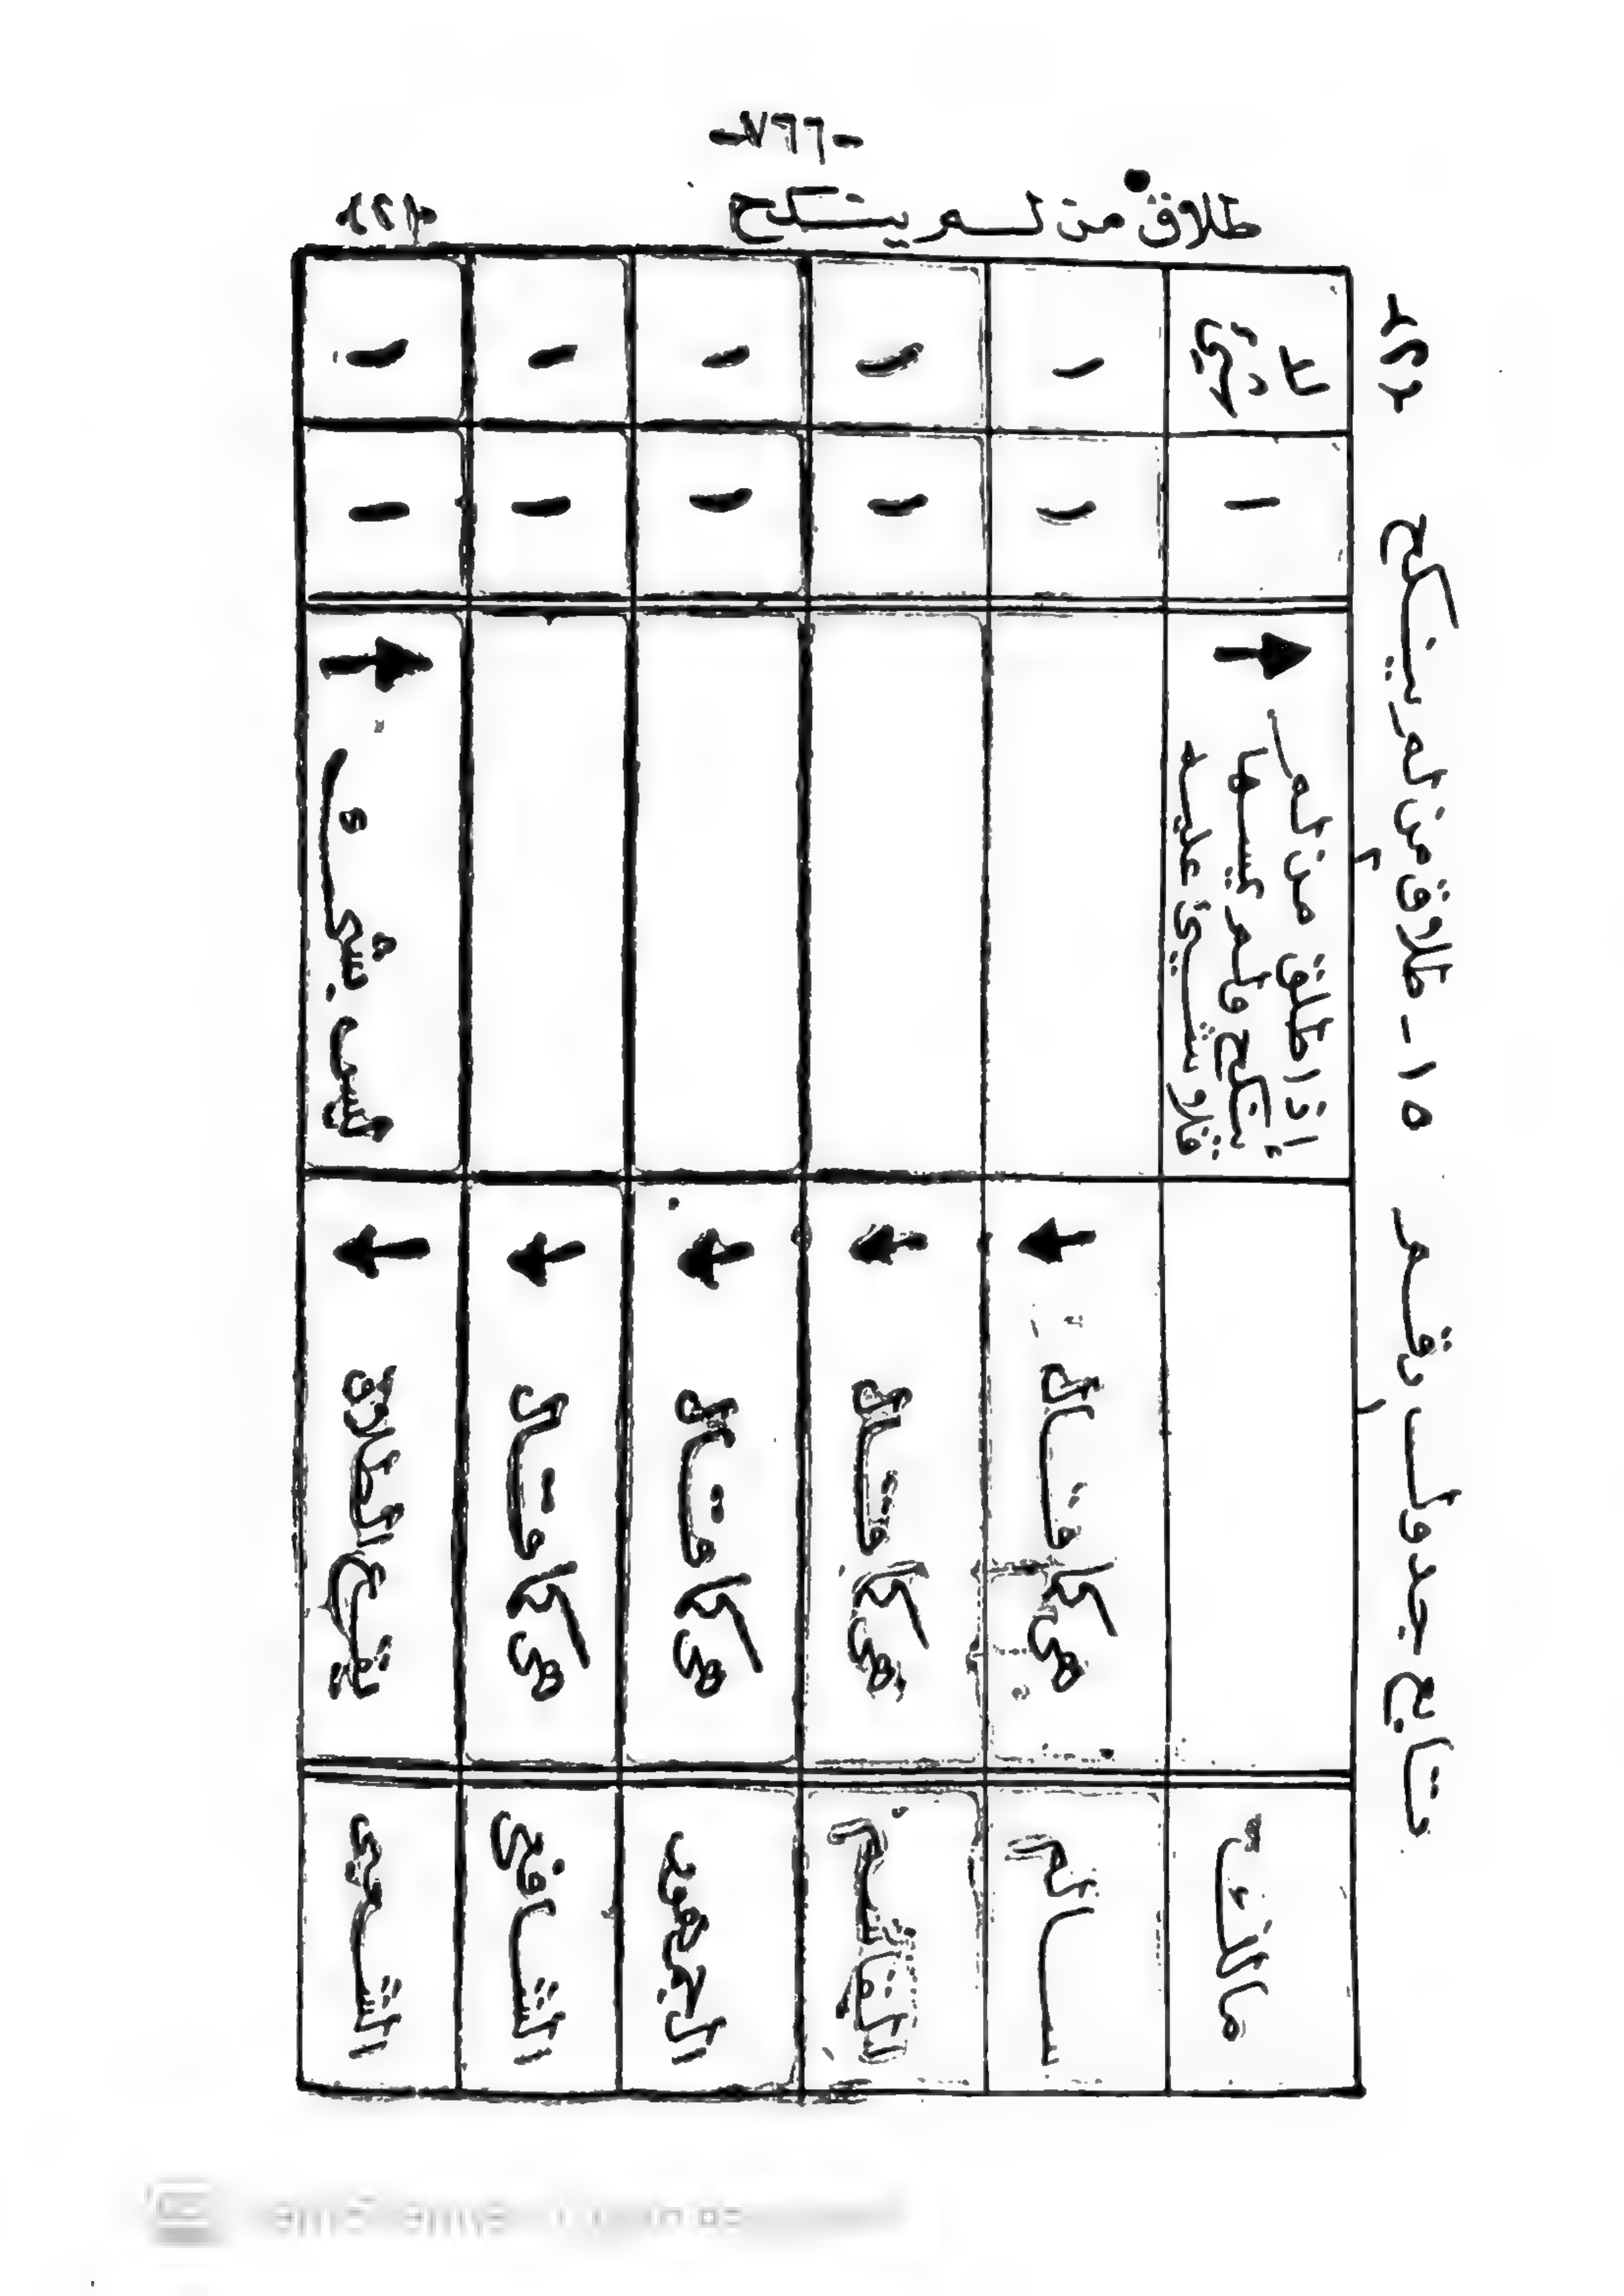 -٧٦٦-
طلاق من لم ينكح
«٢»
تابع جدول رقم ١٥ - طلاق من لم ينكح «٢»
مالك
إذا طلق من لم
ينكح ولم يسمها
فلا شيئ عليه
-
لا
سالم
هى كما قال
-
-
القاسم
هى كما قال
-
-
الجمهور
هى كما قال
-
-
الشافعى
هى كما قال
-
-
الشعبى
يقع الطلاق
ليس بشىء
-
-